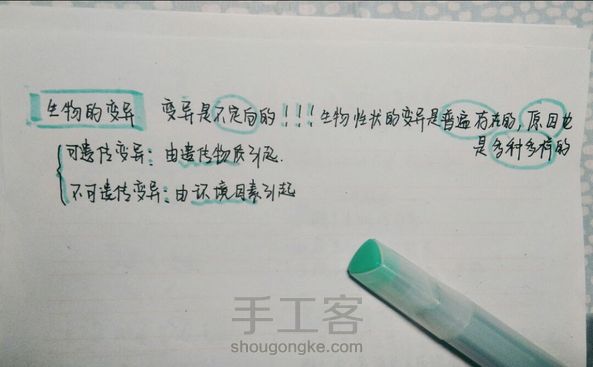 生物的变异 变异是不定向的!!!生物性状的变异是普遍存在的,原因也
是多种多样的
可遗传变异:由遗传物质引起.
不可遗传变异:由环境因素引起
手工客
shougongke.com